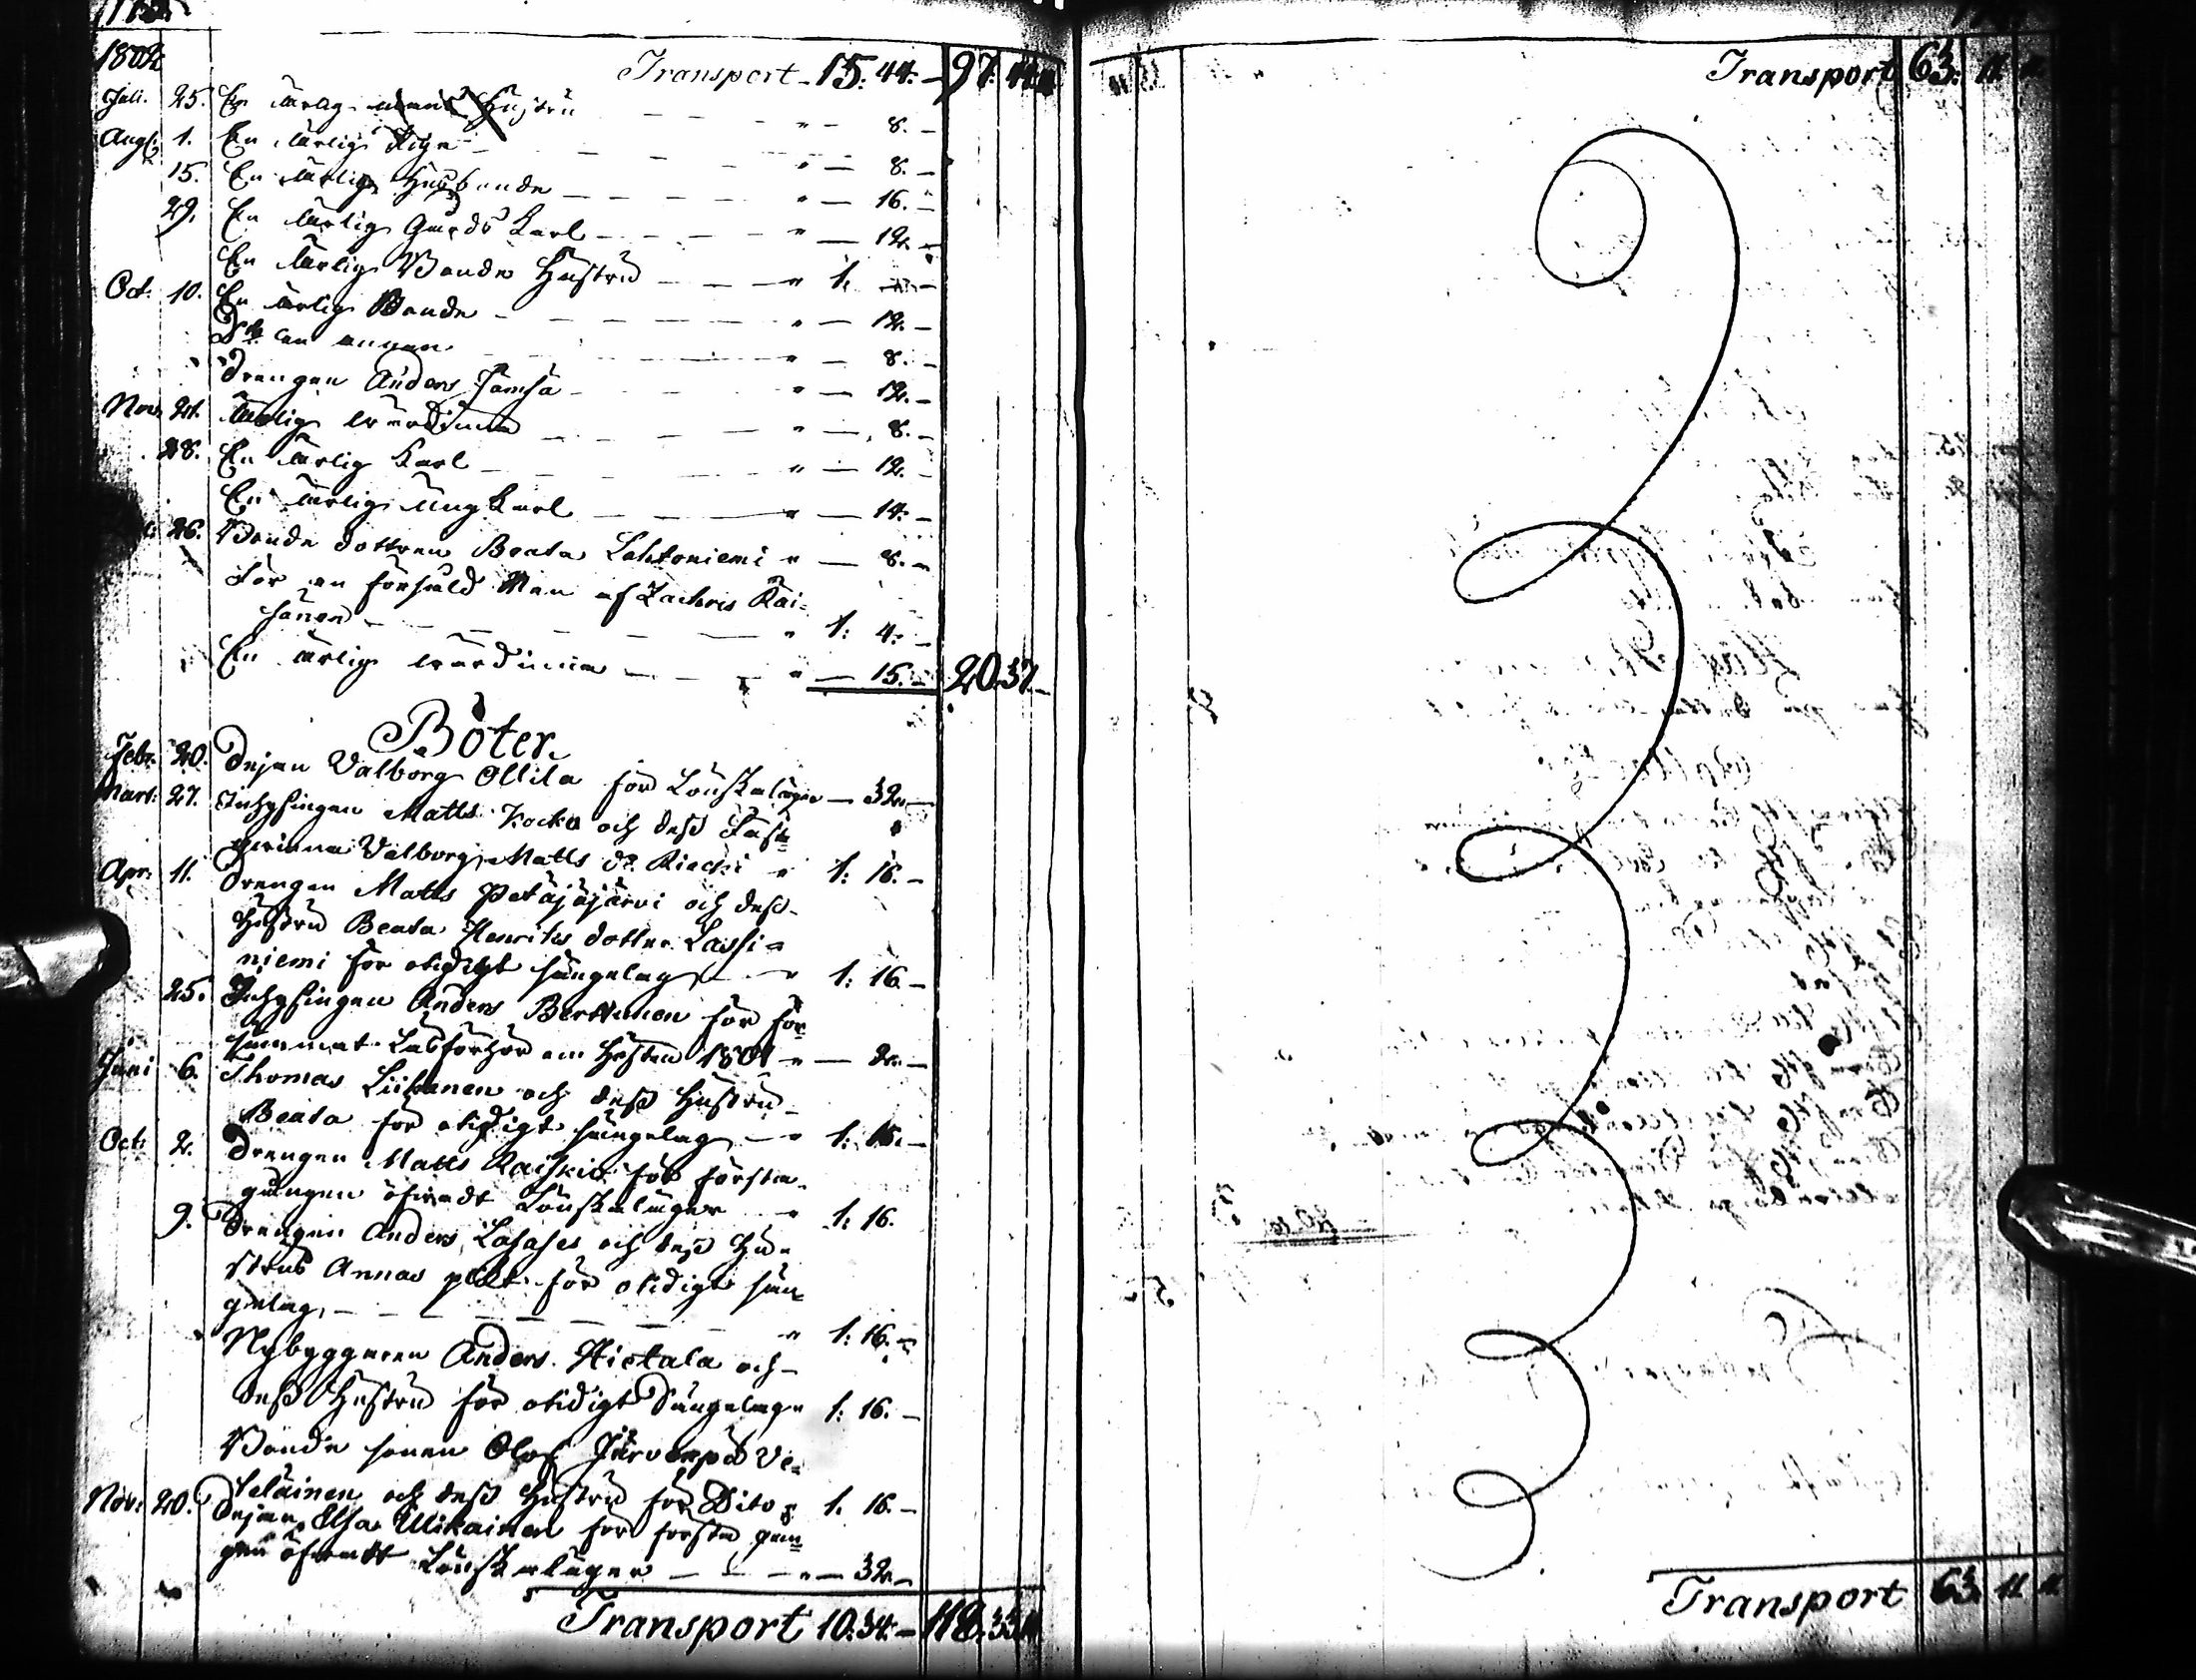 1802
Transport 15: 44. — 97. 44.
Juli. 25. En ärlig Hustru " — 8. —
Aug. 1. En ärlig Piga " — 8. —
15. En ärlig Husbonde " — 16. —
29. En ärlig Gårds Karl " — 12. —
En ärlig Bonde Hustru " 1. —
Oct. 10. En ärlig Bonde " — 12. —
Dito en annan " — 8. —
Drengen Anders Jämsä " — 12. —
Nov. 21. Ärlig värdinna " — 8. —
28. En ärlig Karl " — 12. —
En ärlig ung Karl " — 14. —
26. Bonde dottren Beata Lahtoniemi " — 8. —
För en försåld Man af Zachris Rai=
sanen " 1: 4: —
En ärlig värdinna " — 15. — 20. 37. —
Böter
Febr. 20. Dejan Valborg Ollila för Lönskaläger — 32. —
Mart. 27. Inhysingen Matts Kocko och dess Fäst=
qvinna Valborg Matts dr. Kiecki " 1: 16. —
Apr. 11. Drengen Matts Petäjäjärvi och dess
Hustru Beata Henriks dotter Lassi=
niemi för otidigt sängelag " 1: 16. —
25. Inhysingen Anders Berttunen för för=
summat Läsförhör om Hösten 1801 " — 2. —
Juni 6. Thomas Liikanen och dess Hustru
Beata för otidigt sängelag " 1: 16. —
Oct. 2. Drengen Matts Raiskio för första
gången öfvadt Lönskaläger " 1: 16.
9. Drengen Anders och dess Hu=
strus Annas plikt för otidigt sän=
gelag, " 1: 16. —
Nybyggaren Anders Hietala och
dess Hustru för otidigt Sängelag " 1: 16. —
Bonde sonen Olof Järvenpä Ve=
teläinen och dess Hustru för Dito " 1. 16. —
Nov. 20. Dejan Elsa Ulikainen för första gån=
gen öfvadt Lönskaläger " — 32. —
Transport 10: 34. — 118. 33.
Transport 63. 11.
Transport 63. 11.